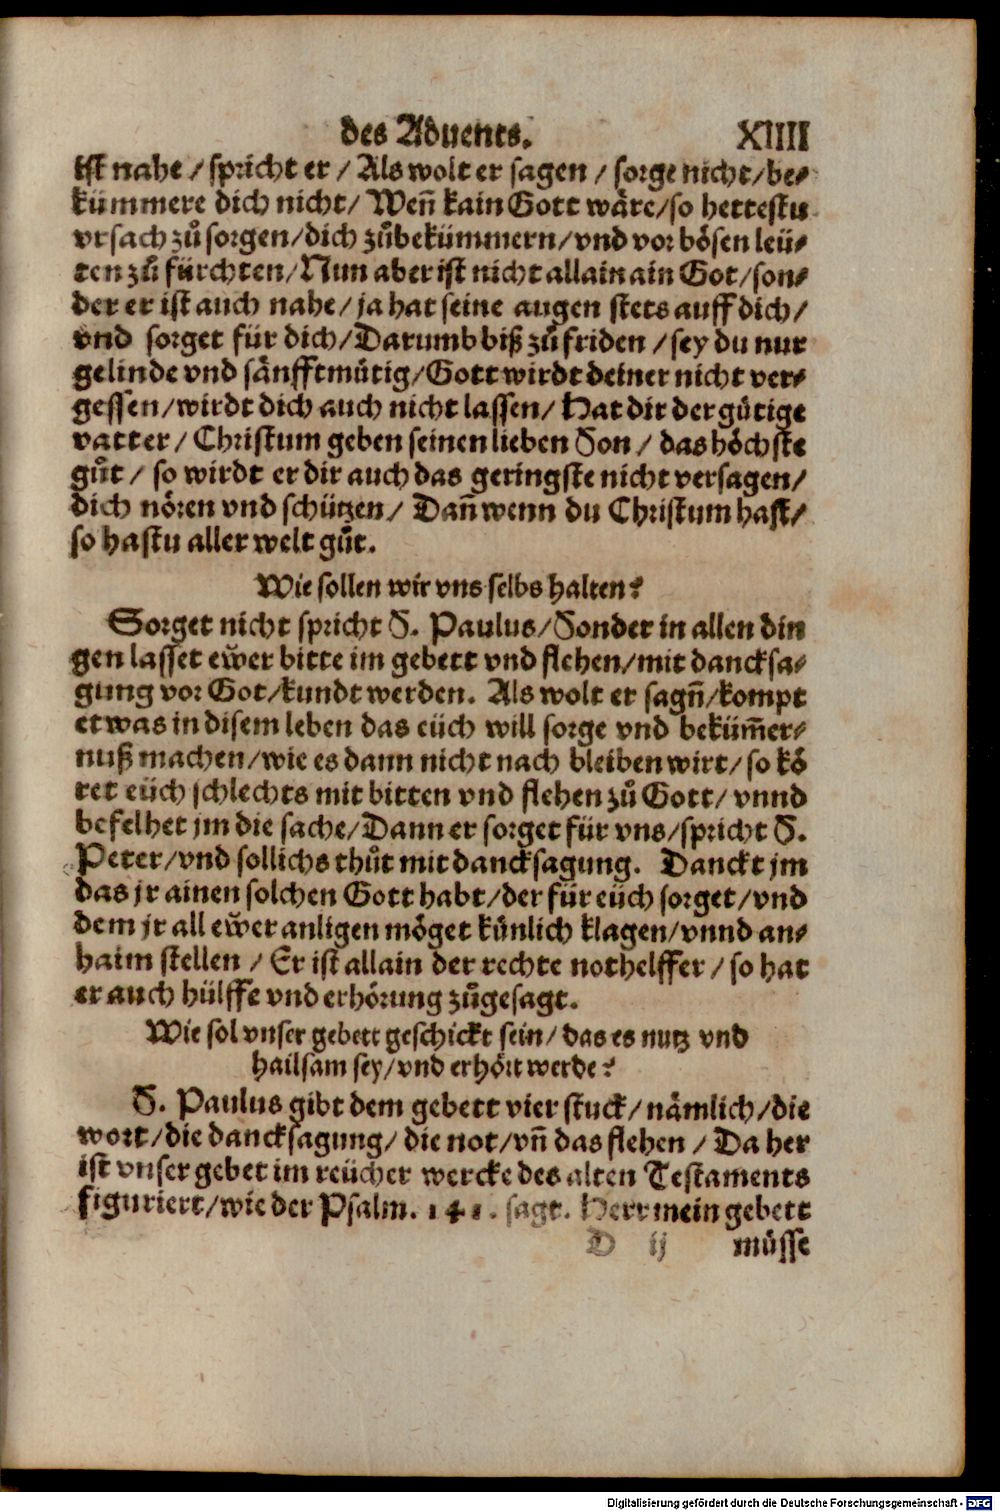 des Aduents. XIIII
ist nahe / spricht er / Als wolt er sagen / sorge nicht / be⸗
kümmere dich nicht / Weñ kain Gott wäre / so hettestu
vrsach zů sorgen / dich zůbekümmern / vnd vor bösen leü⸗
ten zů fürchten / Nun aber ist nicht allain ain Got / son⸗
der er ist auch nahe / ja hat seine augen stets auff dich /
vnd sorget für dich / Darumb biß zů friden / sey du nur
gelinde vnd sänfftmütig / Gott wirdt deiner nicht ver⸗
gessen / wirdt dich auch nicht lassen / Hat dir der gütige
vatter / Christum geben seinen lieben Son / das höchste
gůt / so wirdt er dir auch das geringste nicht versagen /
dich nören vnd schützen / Dañ wenn du Christum hast /
so hastu aller welt gůt.
Wie sollen wir vns selbs halten?
Sorget nicht spricht S. Paulus / Sonder in allen din
gen lasset ewer bitte im gebett vnd flehen / mit dancksa⸗
gung vor Got / kundt werden. Als wolt er sagñ / kompt
etwas in disem leben das eüch will sorge vnd bekům̃er⸗
nuß machen / wie es dann nicht nach bleiben wirt / so kö
ret eüch schlechts mit bitten vnd flehen zů Gott / vnnd
befelhet jm die sache / Dann er sorget für vns / spricht S.
Peter / vnd sollichs thůt mit dancksagung. Danckt jm
das jr ainen solchen Gott habt / der für eüch sorget / vnd
dem jr all ewer anligen möget künlich klagen / vnnd an⸗
haim stellen / Er ist allain der rechte nothelffer / so hat
er auch hülffe vnd erhörung zůgesagt.
Wie sol vnser gebett geschickt sein / das es nutz vnd
hailsam sey / vnd erhört werde?
S. Paulus gibt dem gebett vier stuck / nämlich / die
wort / die dancksagung / die not / vñ das flehen / Da her
ist vnser gebet im reücher wercke des alten Testaments
figuriert / wie der Psalm. 141. sagt. Herr mein gebett
D ij müsse
Digitalisierung gefördert durch die Deutsche Forschungsgemeinschaft - DFG